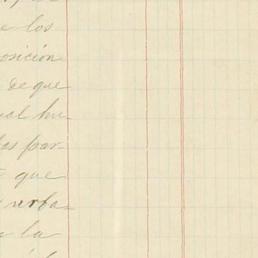 e los
osición
de que
ual hu
las par-
que
urba-
a la